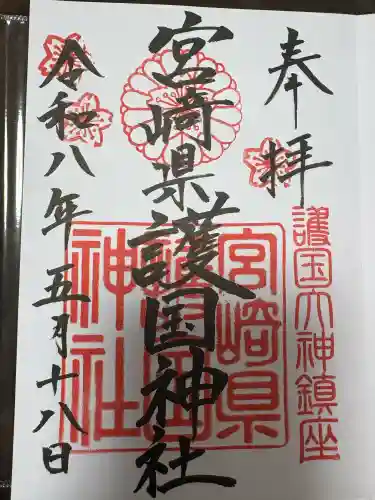 奉拝
護国大神鎮座
宮崎県護国神社
宮崎県
護国
神社
令和八年五月十八日